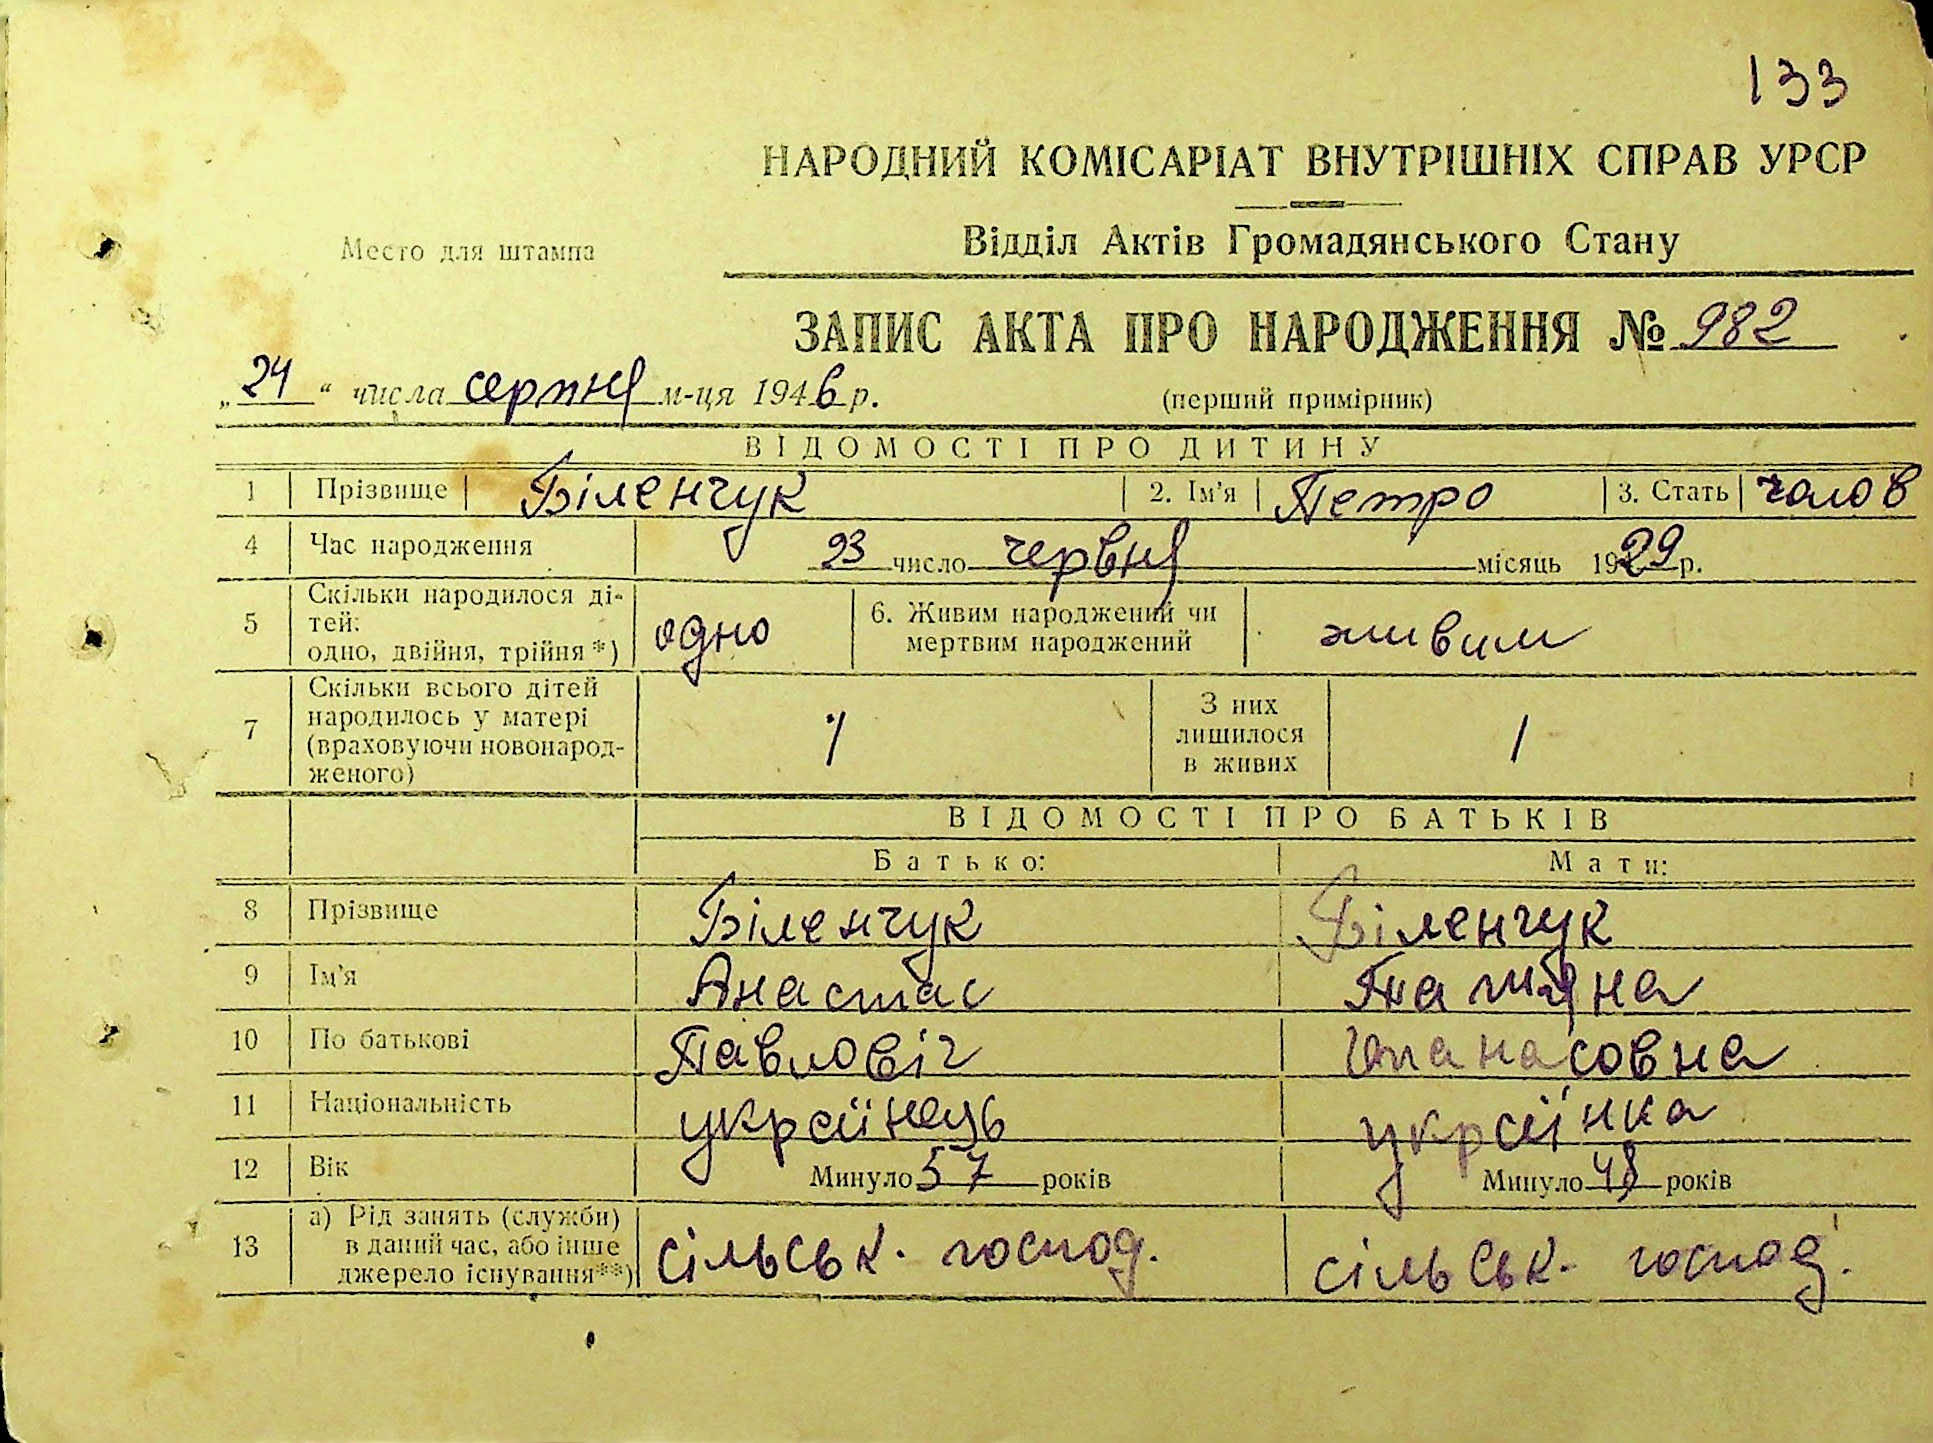 133
НАРОДНИЙ КОМІСАРІАТ ВНУТРІШНІХ СПРАВ УРСР
Место для штампа
Відділ Актів Громадянського Стану
ЗАПИС АКТА ПРО НАРОДЖЕННЯ № 982
„24“ числа серпня м-ця 1946 р.
(перший примірник)
ВІДОМОСТІ ПРО ДИТИНУ
1 Прізвище Біленчук 2. Ім'я Петро 3. Стать чолов
4 Час народження 23 число червня місяць 1929 р.
5 Скільки народилося ді-
тей:
одно, двійня, трійня *) одно
6. Живим народжений чи
мертвим народжений живим
7 Скільки всього дітей
народилось у матері
(враховуючи новонарод-
женого) 1
З них
лишилося
в живих 1
ВІДОМОСТІ ПРО БАТЬКІВ
Батько: Мати:
8 Прізвище Біленчук Біленчук
9 Ім'я Анастас Татяна
10 По батькові Павловіч Опанасовна
11 Національність українець українка
12 Вік Минуло 57 років Минуло 48 років
13 а) Рід занять (служби)
в даний час, або інше
джерело існування**) сільськ. господ. сільськ. господ.